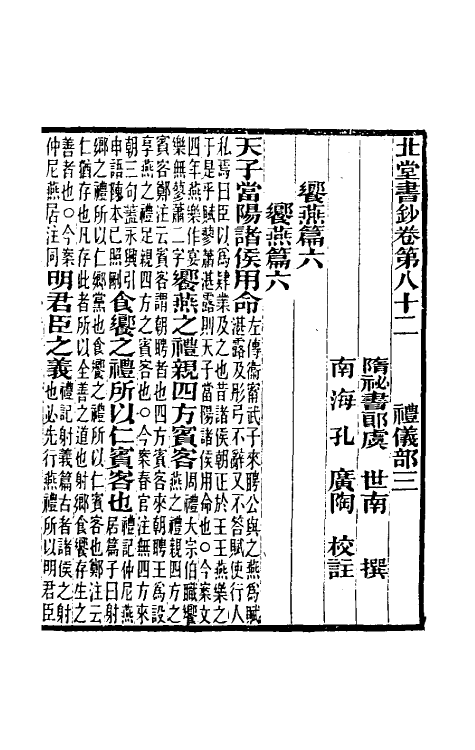 北堂書鈔卷第八十二　禮儀部三
隋祕書郎虞　世南　撰
南海孔　廣陶　校註
饗燕篇六
饗燕篇六
天子當陽諸侯用命左傳衛甯武子來聘公與之燕爲賦湛露及彤弓不辭又不答賦使行人
私焉曰臣以爲肄業及之也昔諸侯朝正於王王燕樂之於是乎賦蓼蕭湛露則天子當陽諸侯用命也〇今案文
四年燕樂作宴樂無蓼蕭二字饗燕之禮親四方賓客周禮大宗伯職饗燕之禮親四方之
賓客鄭注云賓客謂朝聘者也四方賓客來朝聘王爲設享燕之禮足親四方之賓客也〇今案春官注無四方來
朝三句蓋永興引申語陳本已照刪食饗之禮所以仁賓客也禮記仲尼燕居篇子曰射
鄉之禮所以仁鄉黨也食饗之禮所以仁賓客也鄭注云仁猶存也凡存此者所以全善之道也射鄉食饗存生之
善者也〇今案仲尼燕居注同明君臣之義禮記射義篇古者諸侯之射也必先行燕禮所以明君臣